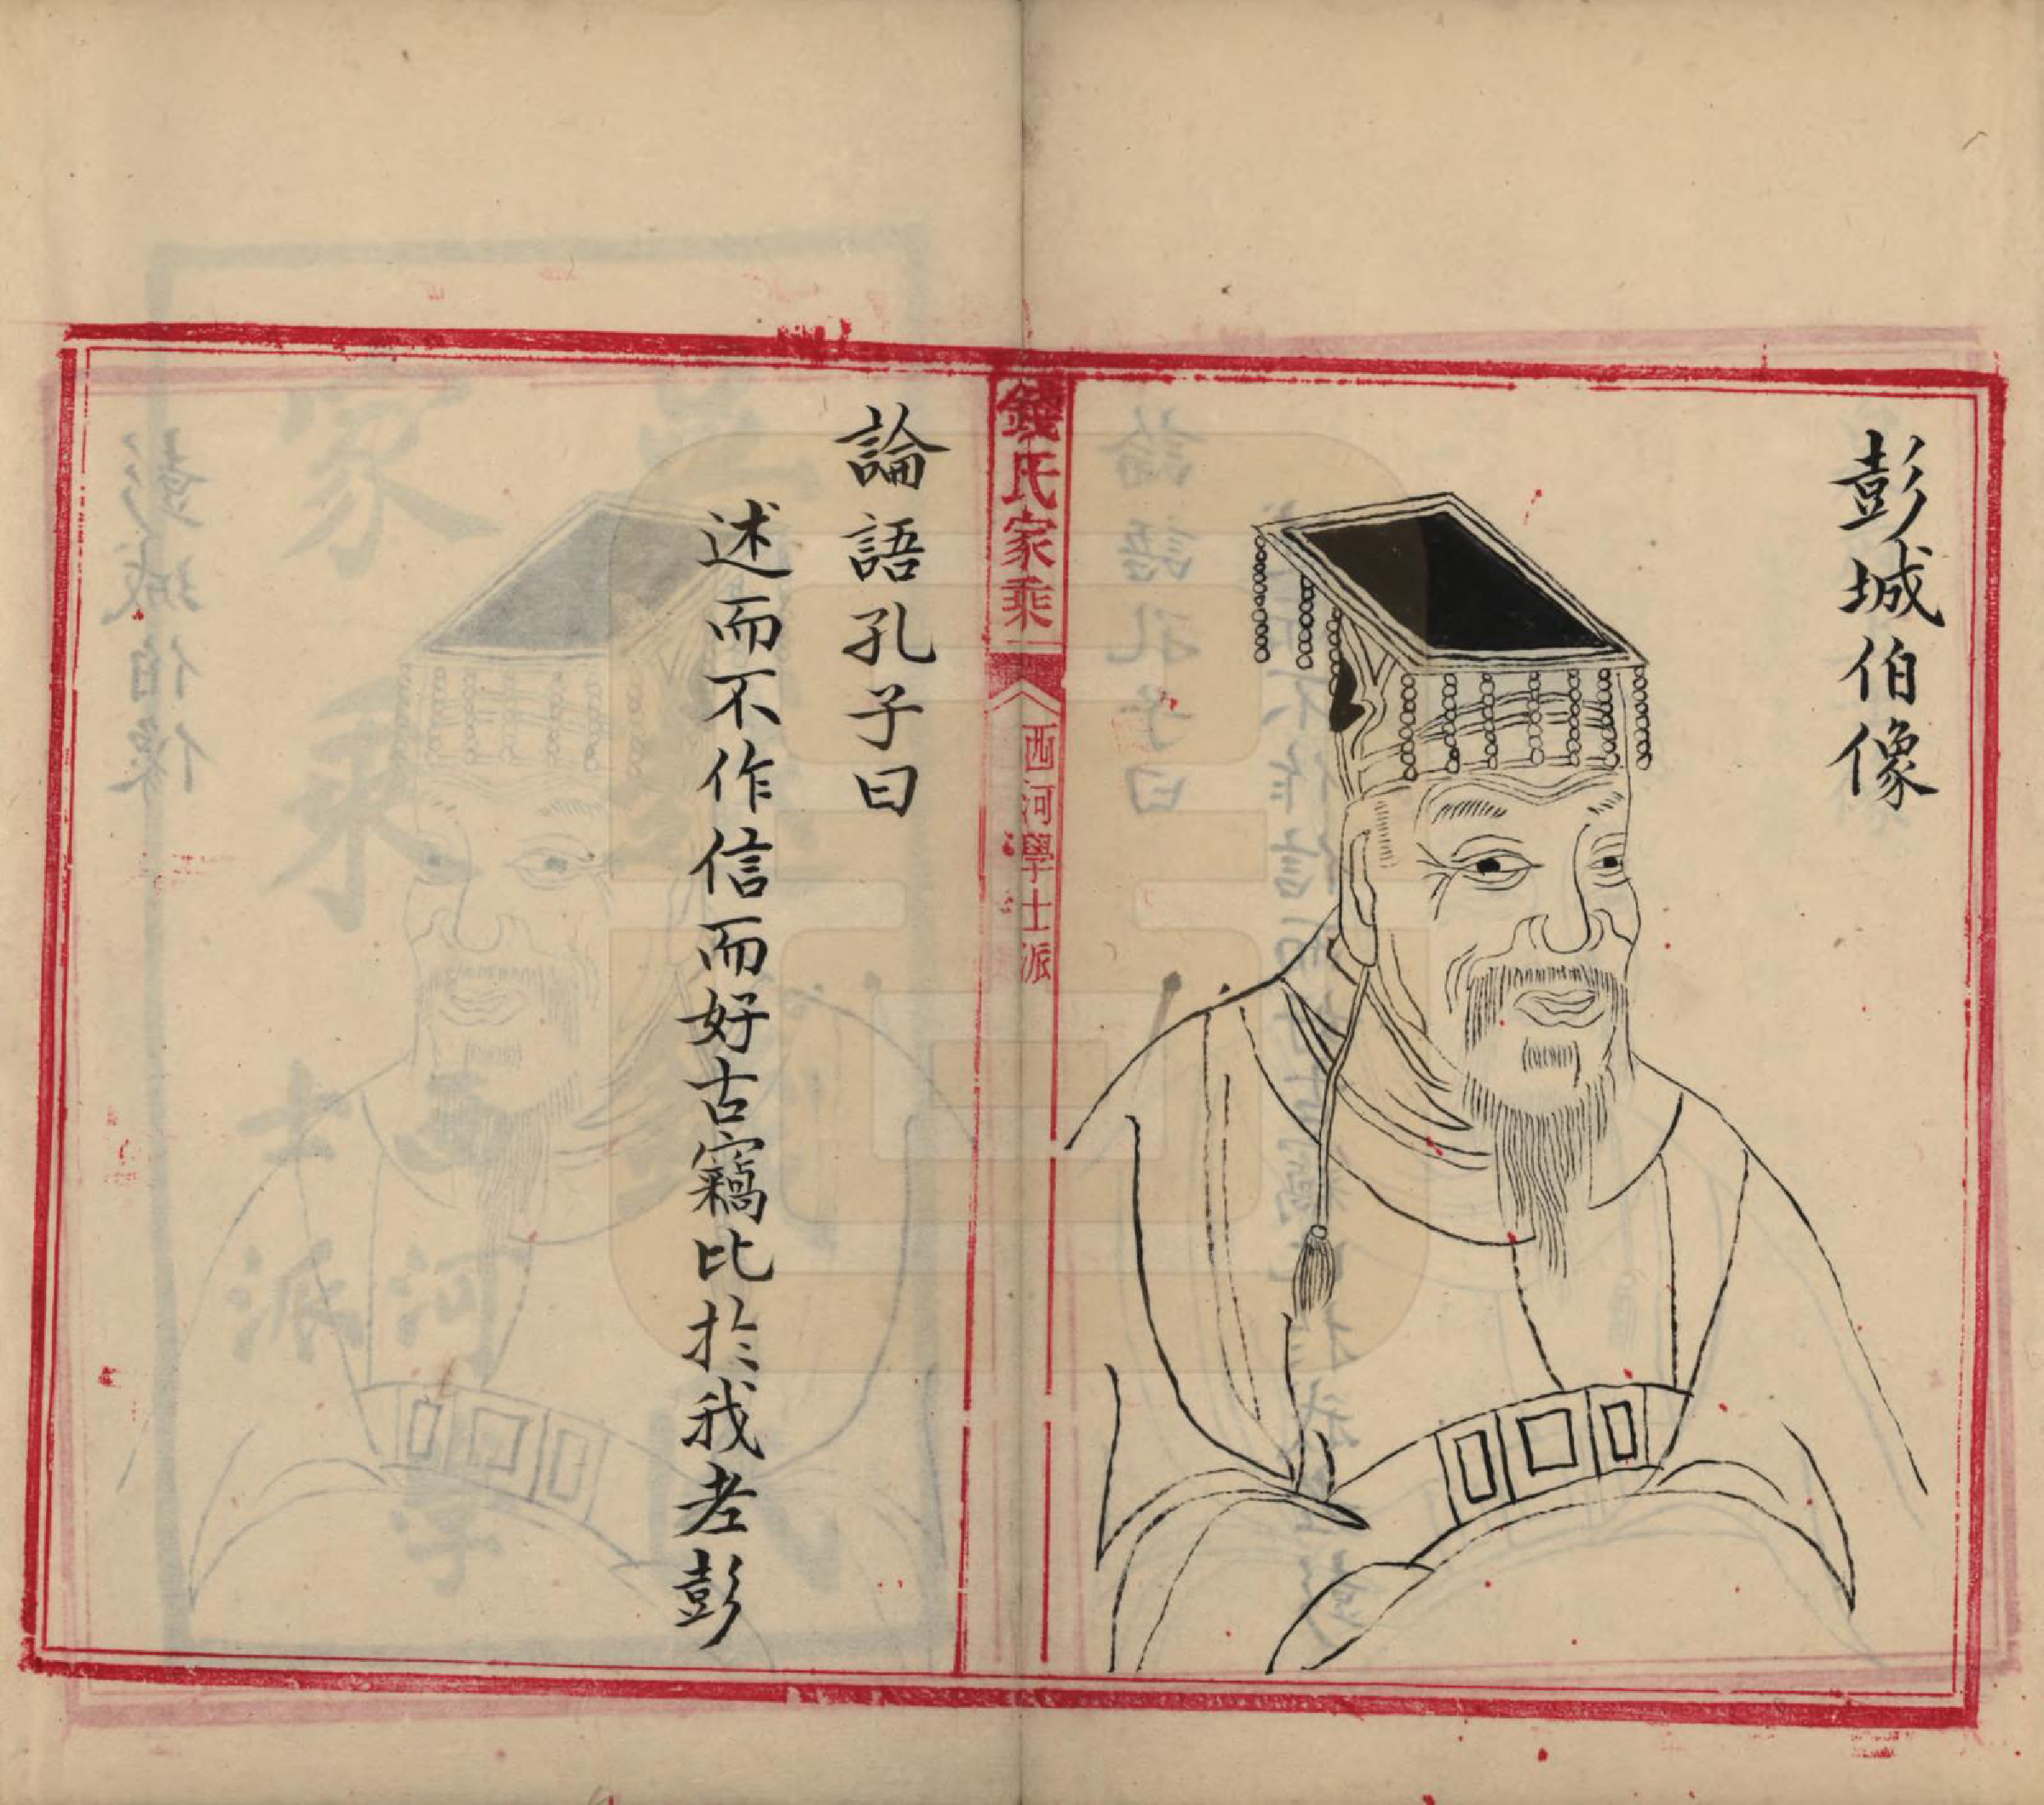 彭城伯像
錢氏家乘
西河學士派
論語孔子曰
述而不作信而好古竊比於我老彭